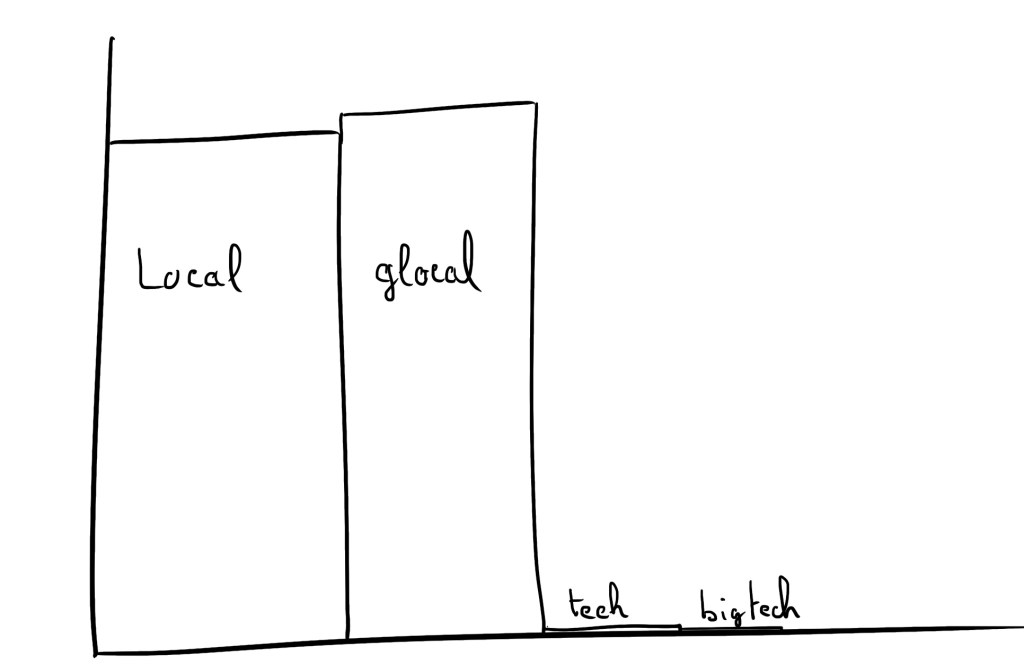 Local
glocal
tech
bigtech